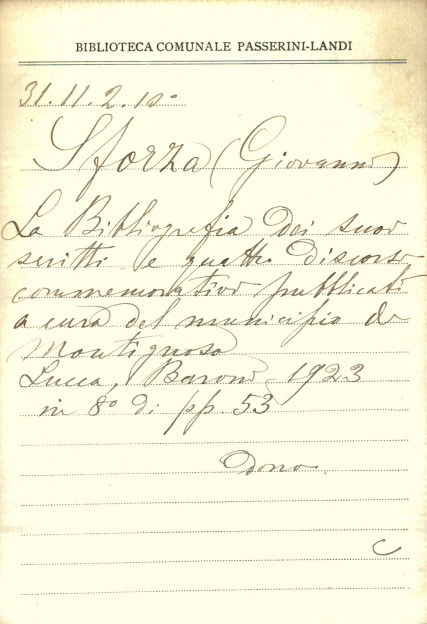 BIBLIOTECA COMUNALE PASSERINI-LANDI
31.11.2.10
Sforza (Giovanni)
La Bibliografia dei suoi
scritti e quattro discorsi
commemorativi pubblicati
a cura del municipio di
Montignoso
Lucca, Baroni 1923
in 8° di pp. 53
Dono
C